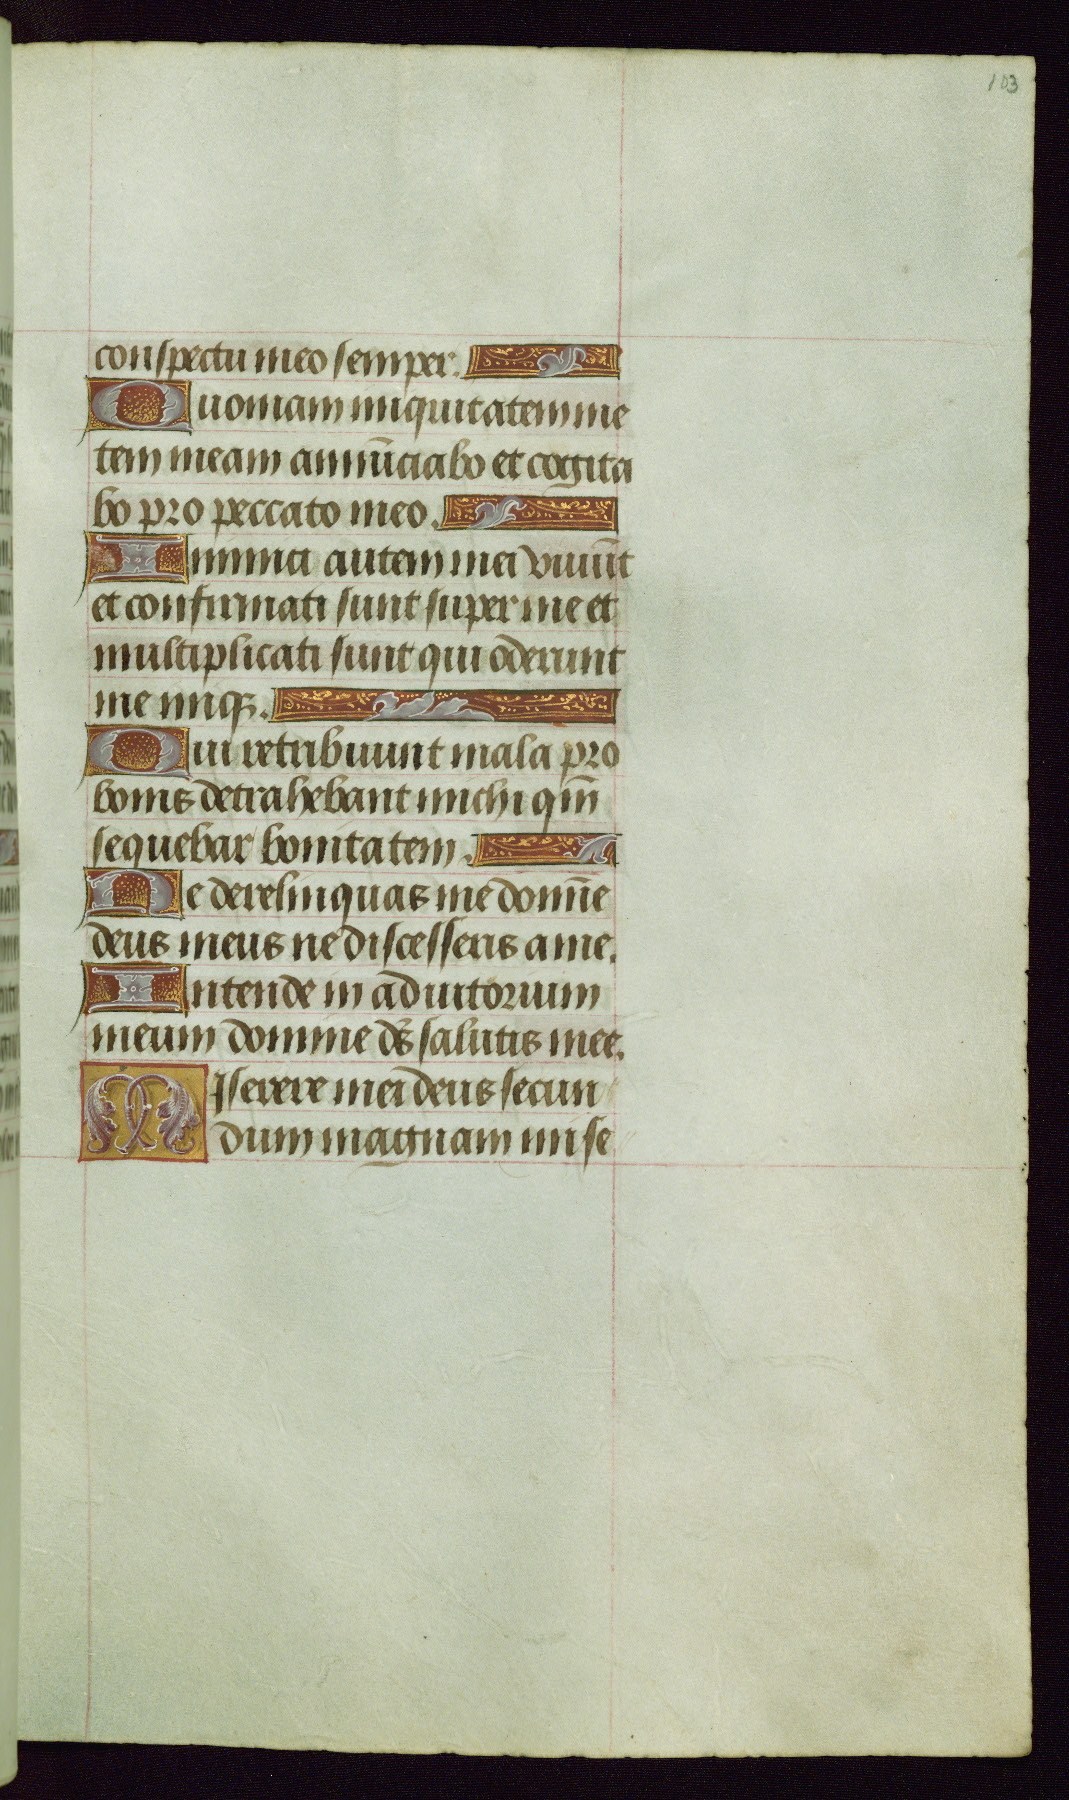 103
conspectu meo semper.
Quoniam iniquitatem me
tem meam annūciabo et cogita
bo pro peccato meo.
Inimici autem mei viuūt
et confirmati sunt super me et
multiplicati sunt qui oderunt
me iniq3.
Qui retribuunt mala pro
bonis detrahebant michi qm̄
sequebar bonitatem.
Ne derelinquas me domīe
deus meus ne discesseris a me.
Intende in adiutorium
meum domine ds̄ salutis mee.
Miserere mei deus secun
dum magnam mise